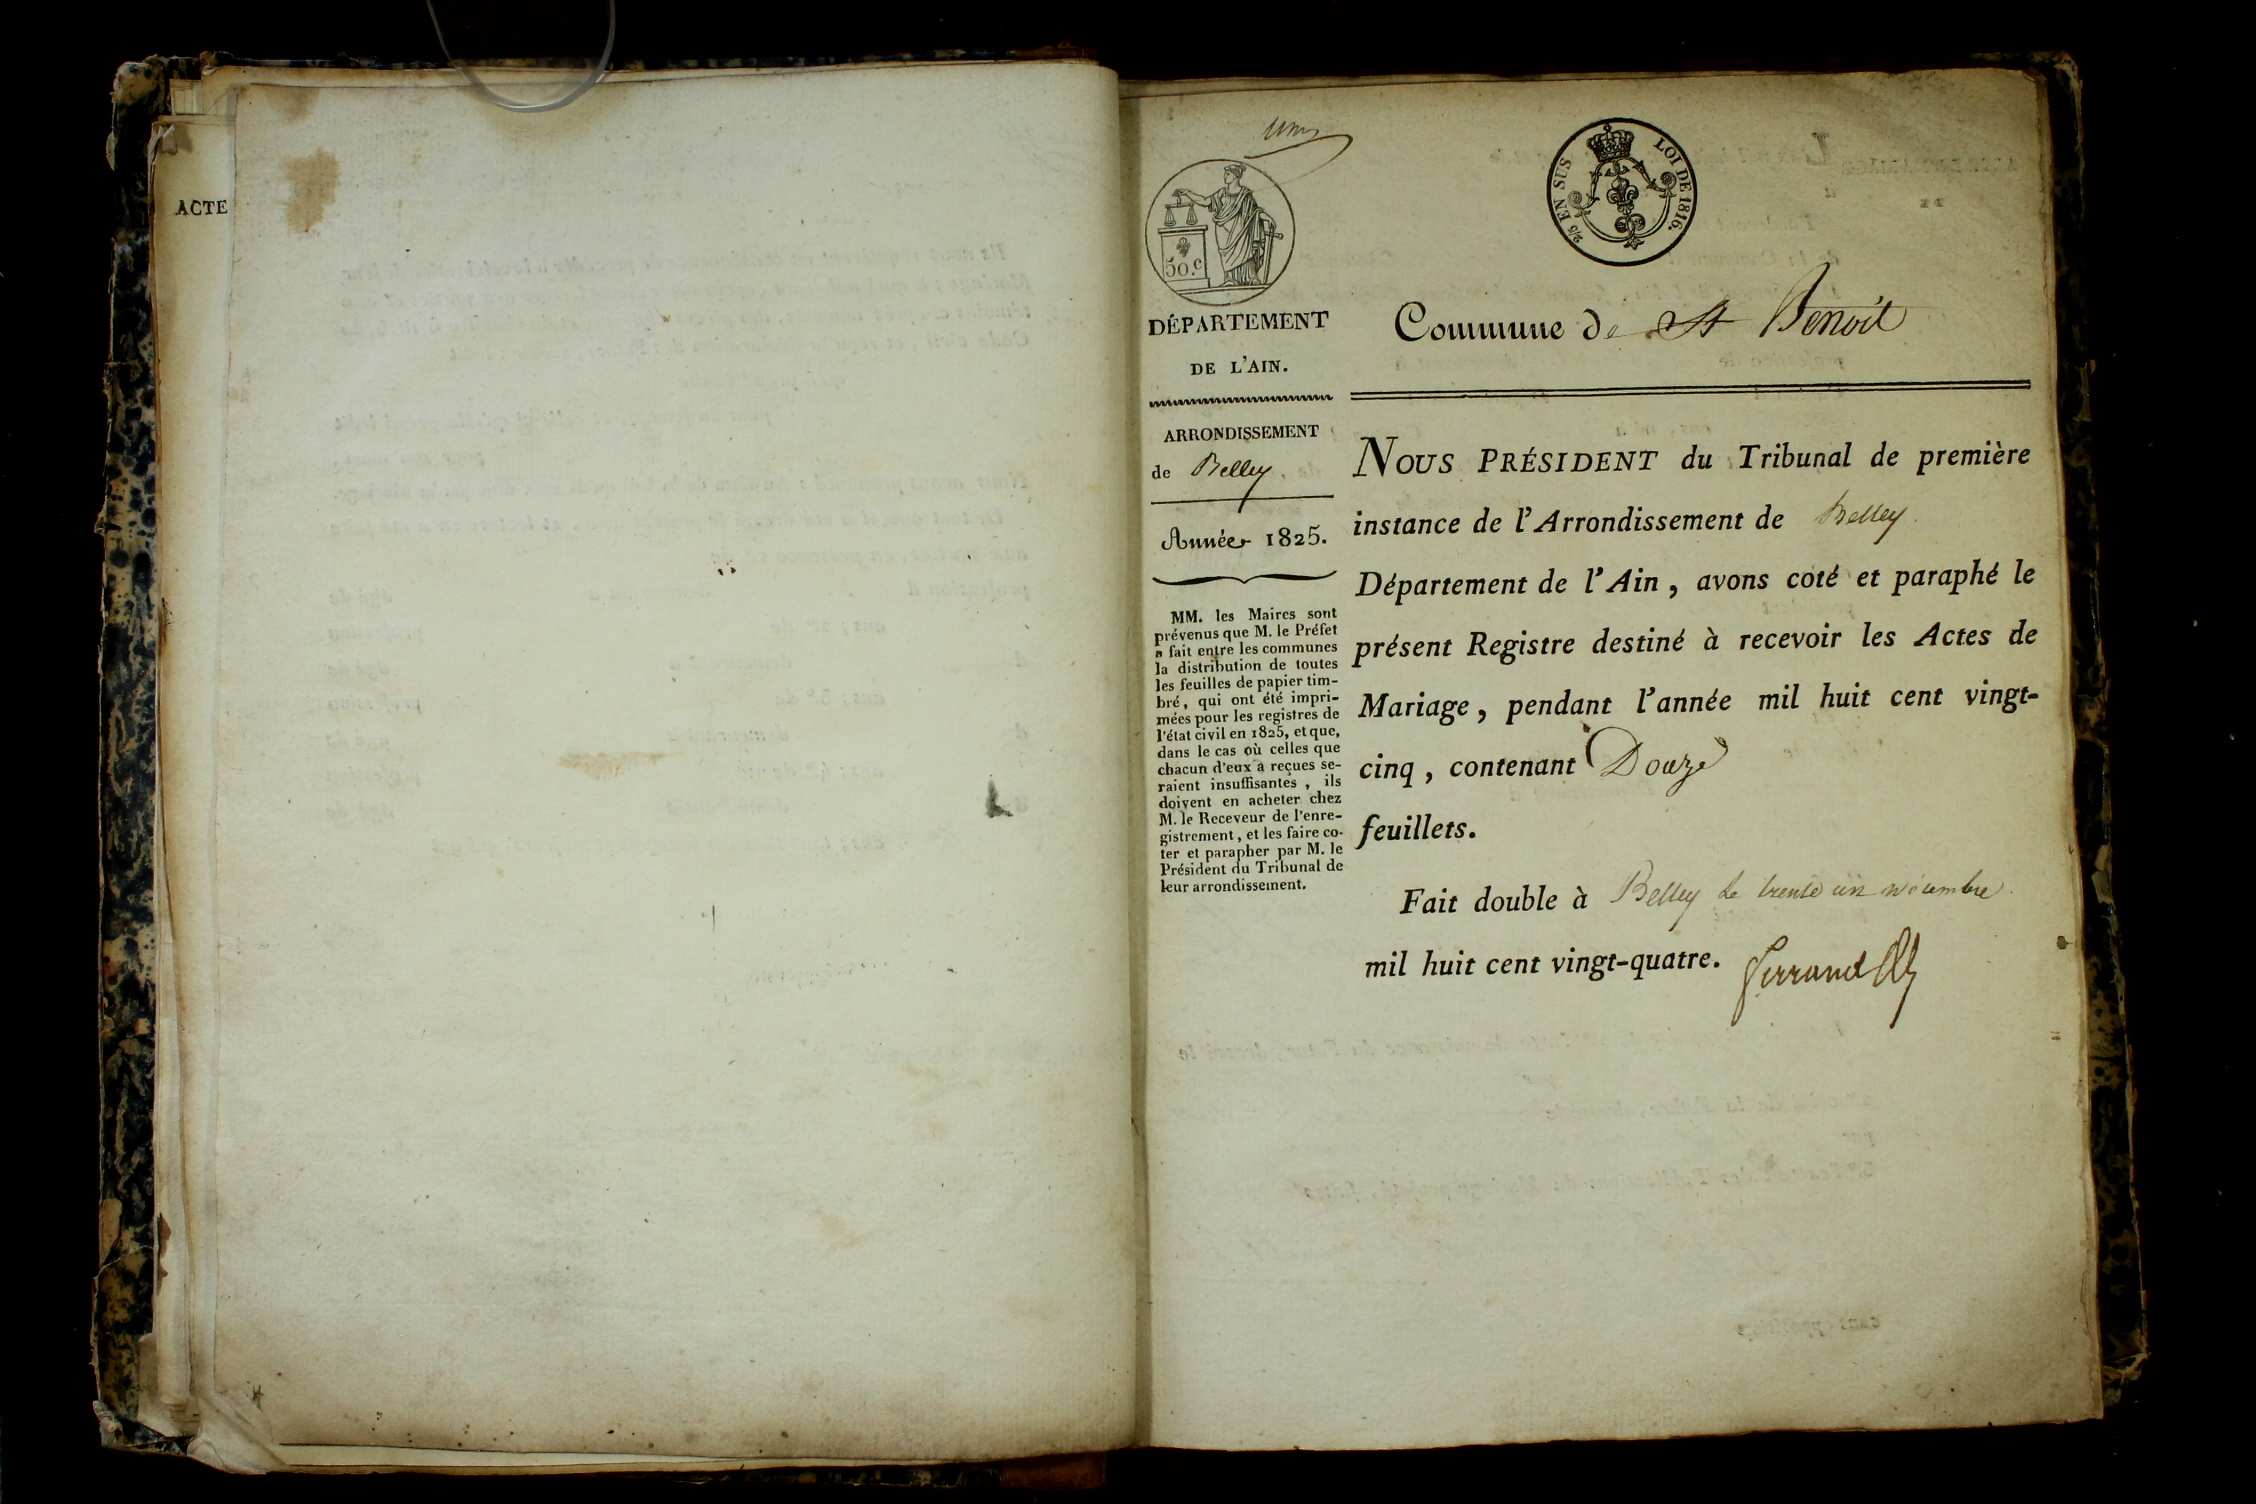 ACTE
50.c
2/5 EN SUS
LOI DE 1816.
DÉPARTEMENT
DE L'AIN.
ARRONDISSEMENT
de Belley
Année 1825.
MM. les Maires sont
prévenus que M. le Préfet
a fait entre les communes
la distribution de toutes
les feuilles de papier tim-
bré, qui ont été impri-
mées pour les registres de
l'état civil en 1825, et que,
dans le cas où celles que
chacun d'eux a reçues se-
raient insuffisantes, ils
doivent en acheter chez
M. le Receveur de l'enre-
gistrement, et les faire co-
ter et parapher par M. le
Président du Tribunal de
leur arrondissement.
Commune de St Benoit
NOUS PRÉSIDENT du Tribunal de première
instance de l'Arrondissement de Belley
Département de l'Ain, avons coté et paraphé le
présent Registre destiné à recevoir les Actes de
Mariage, pendant l'année mil huit cent vingt-
cinq, contenant Douze
feuillets.
Fait double à Belley le trente un
mil huit cent vingt-quatre.